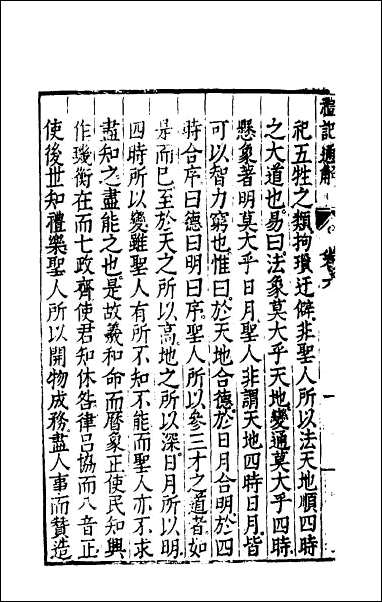 禮記通解
祀五牲之類拘瓚迂僻非聖人所以法天地順四時
之大道也易曰法象莫大乎天地變通莫大乎四時
懸象著明莫大乎日月聖人非謂天地四時日月皆
可以智力窮也惟曰於天地合德於日月合明於四
時合序曰德曰明曰序聖人所以參三才之道者如
是而已至於天之所以高地之所以深日月所以明
四時所以變雖聖人有所不知不能而聖人亦不求
盡知之盡能之也是故羲和命而曆象正使民知興
作璣衡在而七政齊使君知休咎律呂協而八音正
使後世知禮樂聖人所以開物成務盡人事而贊造